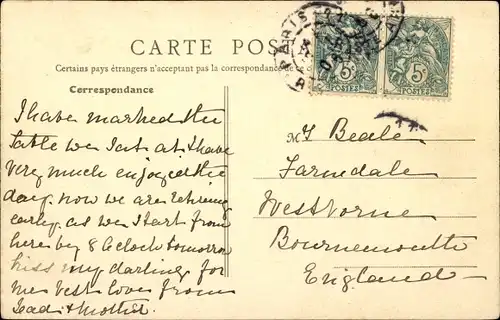 CARTE POS
Certains pays étrangers n'acceptant pas la correspondance de ce
Correspondance
PARIS
5c 5c
POSTES POSTES
I have marked the
table we sat at I have
very much enjoyed the
day. now we are retiring
early. as we start from
here by 8 o'clock tomorrow
kiss my darling for
me best love from
Dad & Mother
Mrs Beale
Farnedale
Westborne
Bournemouth
England